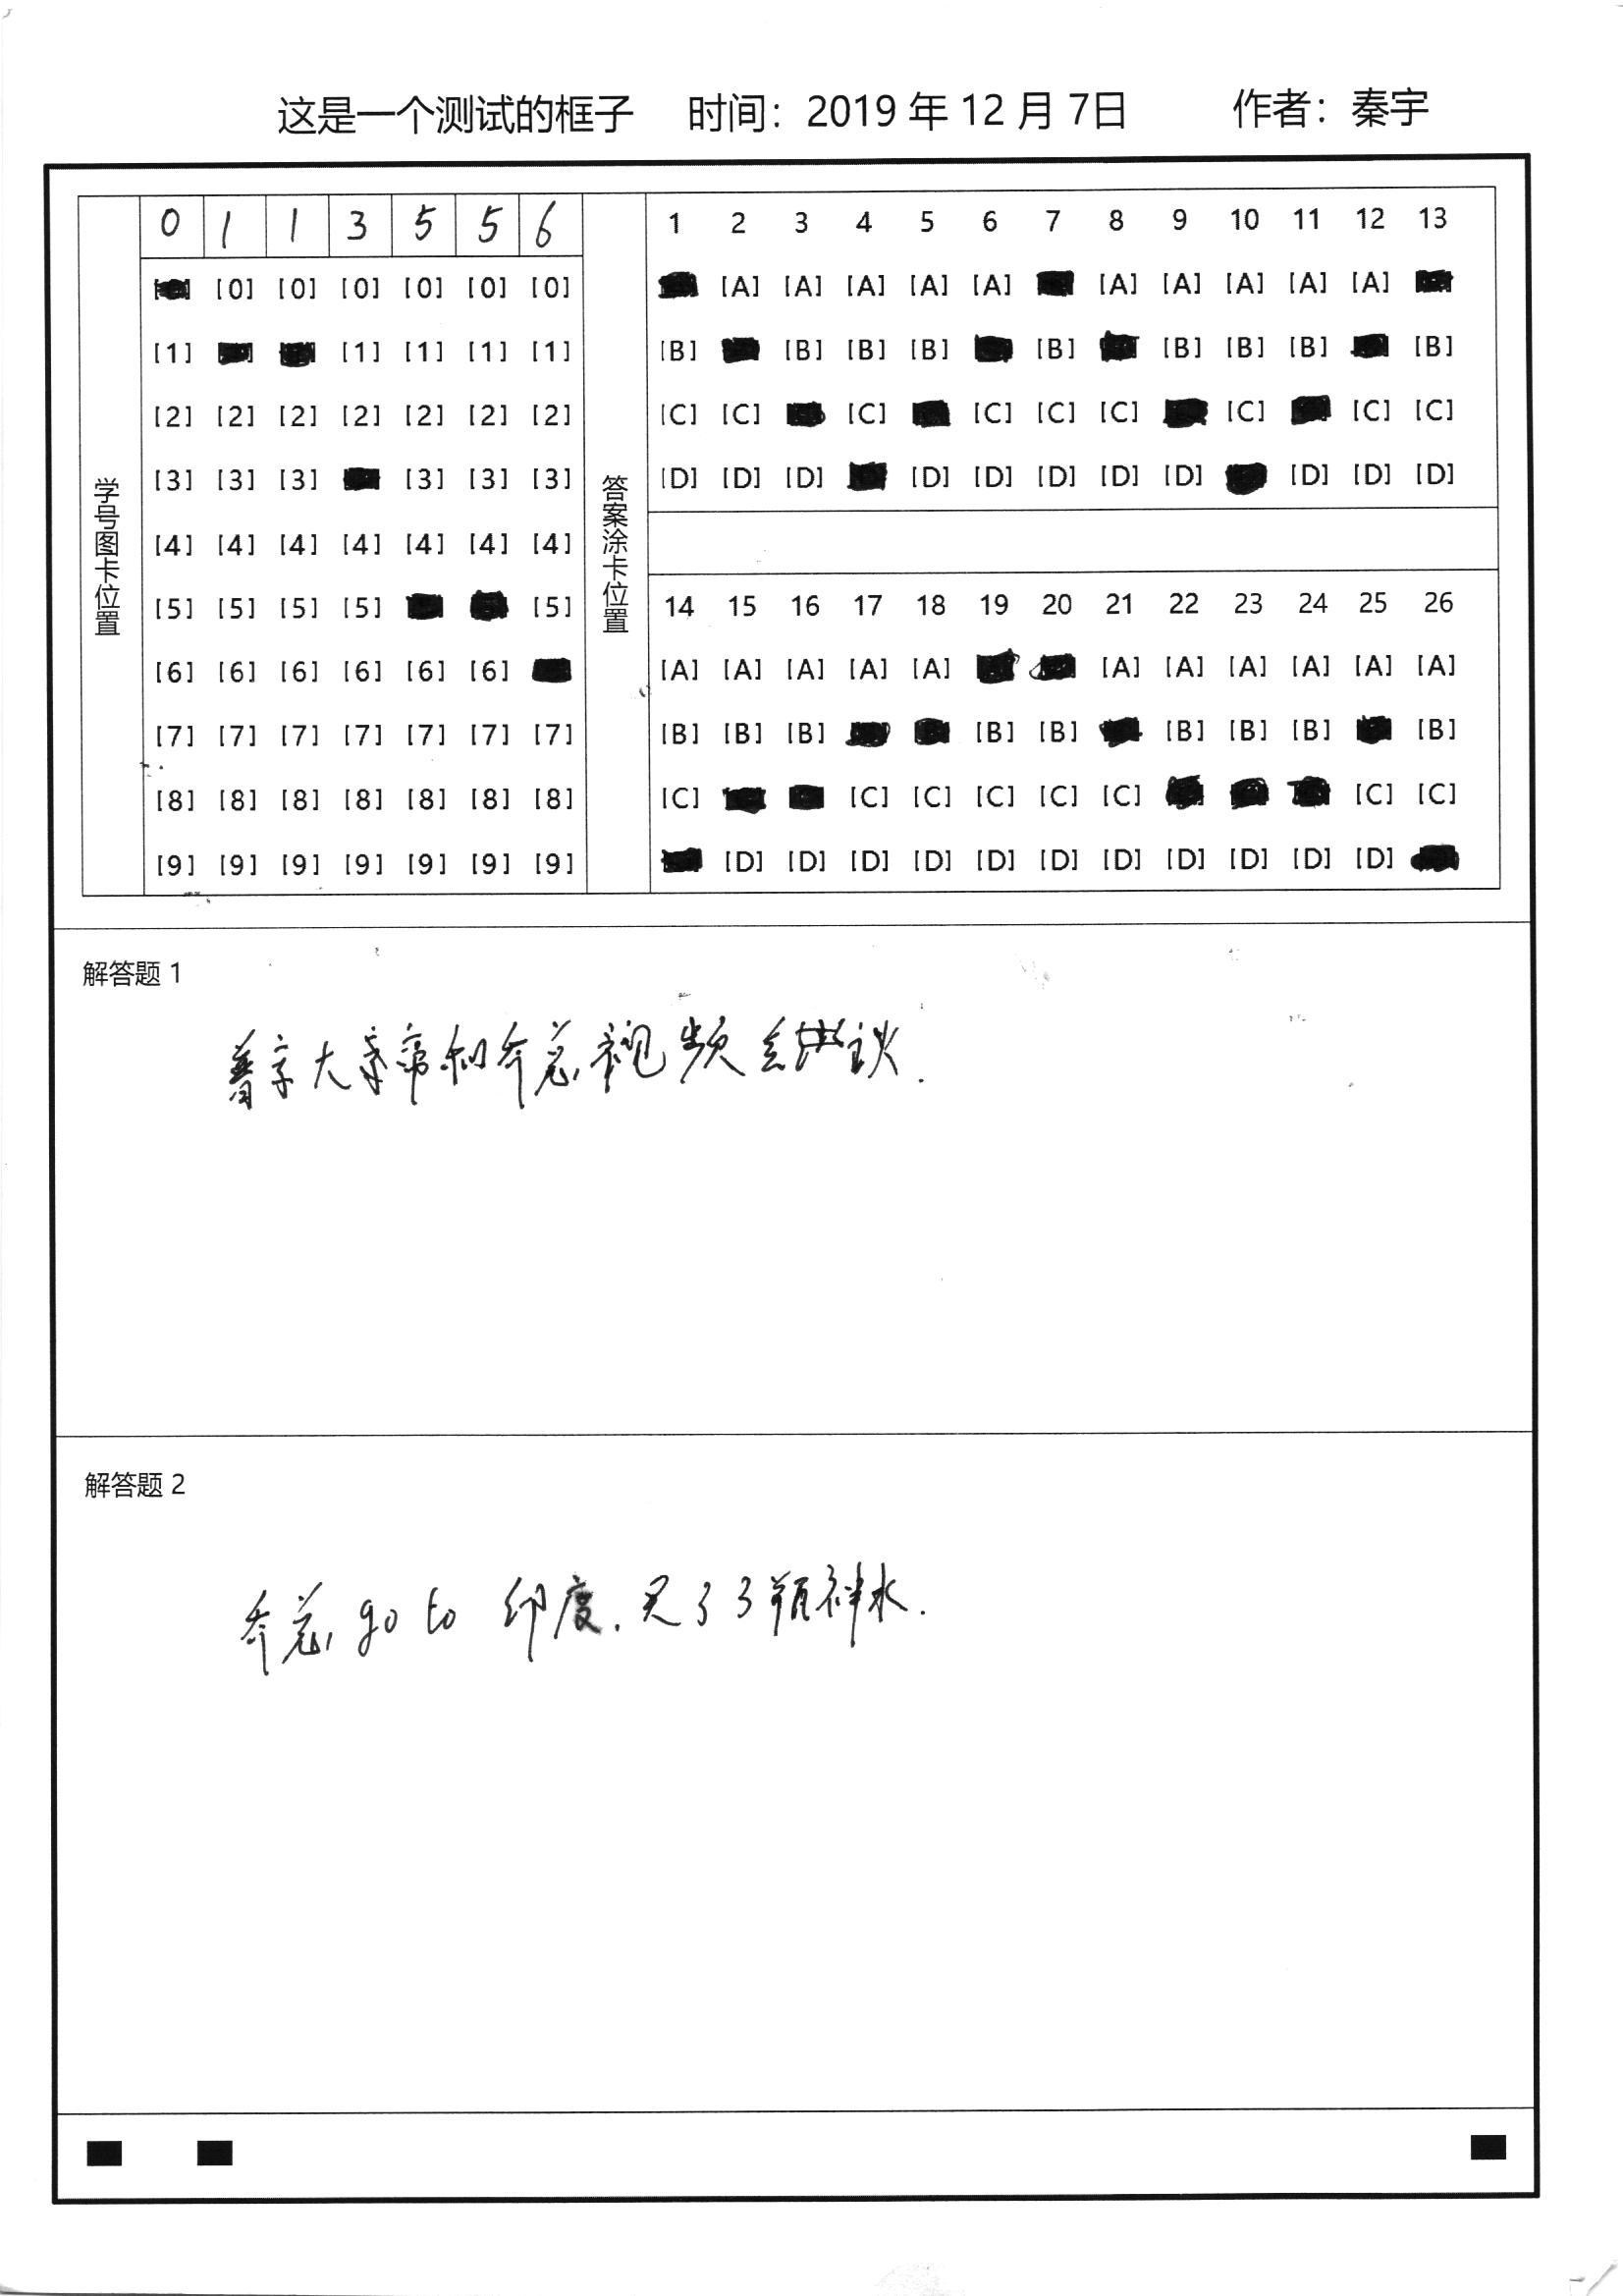 这是一个测试的框子 时间：2019 年 12 月 7日 作者：秦宇
学号图卡位置
0 1 1 3 5 5 6
[0] [0] [0] [0] [0] [0]
[1] [1] [1] [1] [1]
[2] [2] [2] [2] [2] [2] [2]
[3] [3] [3] [3] [3] [3]
[4] [4] [4] [4] [4] [4] [4]
[5] [5] [5] [5] [5]
[6] [6] [6] [6] [6] [6]
[7] [7] [7] [7] [7] [7] [7]
[8] [8] [8] [8] [8] [8] [8]
[9] [9] [9] [9] [9] [9] [9]
答案涂卡位置
1 2 3 4 5 6 7 8 9 10 11 12 13
[A] [A] [A] [A] [A] [A] [A] [A] [A] [A]
[B] [B] [B] [B] [B] [B] [B] [B] [B]
[C] [C] [C] [C] [C] [C] [C] [C] [C]
[D] [D] [D] [D] [D] [D] [D] [D] [D] [D] [D]
14 15 16 17 18 19 20 21 22 23 24 25 26
[A] [A] [A] [A] [A] [A] [A] [A] [A] [A] [A]
[B] [B] [B] [B] [B] [B] [B] [B] [B]
[C] [C] [C] [C] [C] [C] [C] [C]
[D] [D] [D] [D] [D] [D] [D] [D] [D] [D] [D]
解答题 1
大帝和乔总视频会谈.
解答题 2
乔总 go to 印度. 买了3瓶神水.